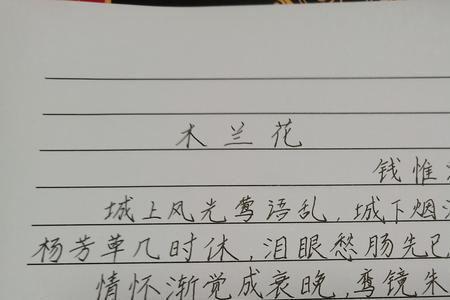 木兰花
钱惟
城上风光莺语乱，城下烟
杨芳草几时休，泪眼愁肠先已
情怀渐觉成衰晚，鸾镜朱